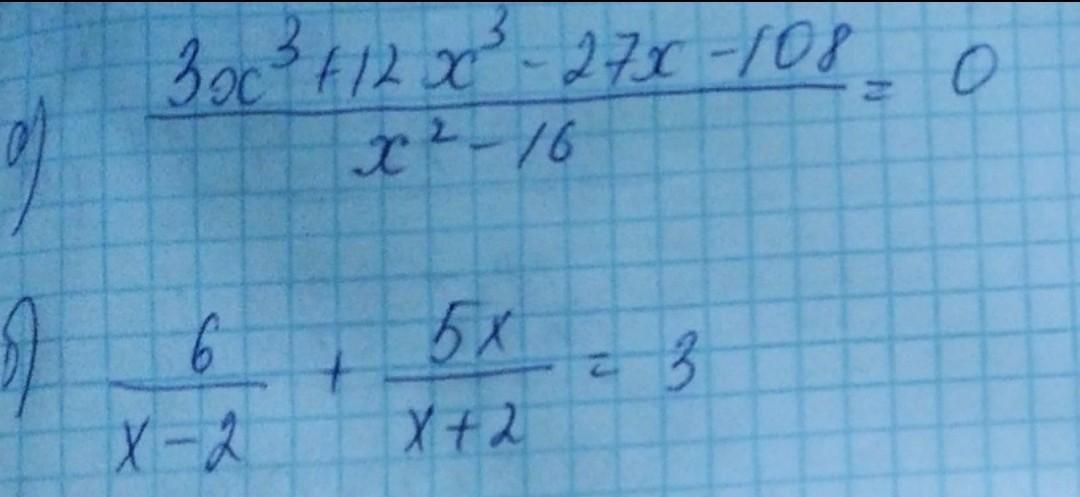 а) (3x³ + 12x³ - 27x - 108)/(x² - 16) = 0
б) 6/(x - 2) + 5x/(x + 2) = 3